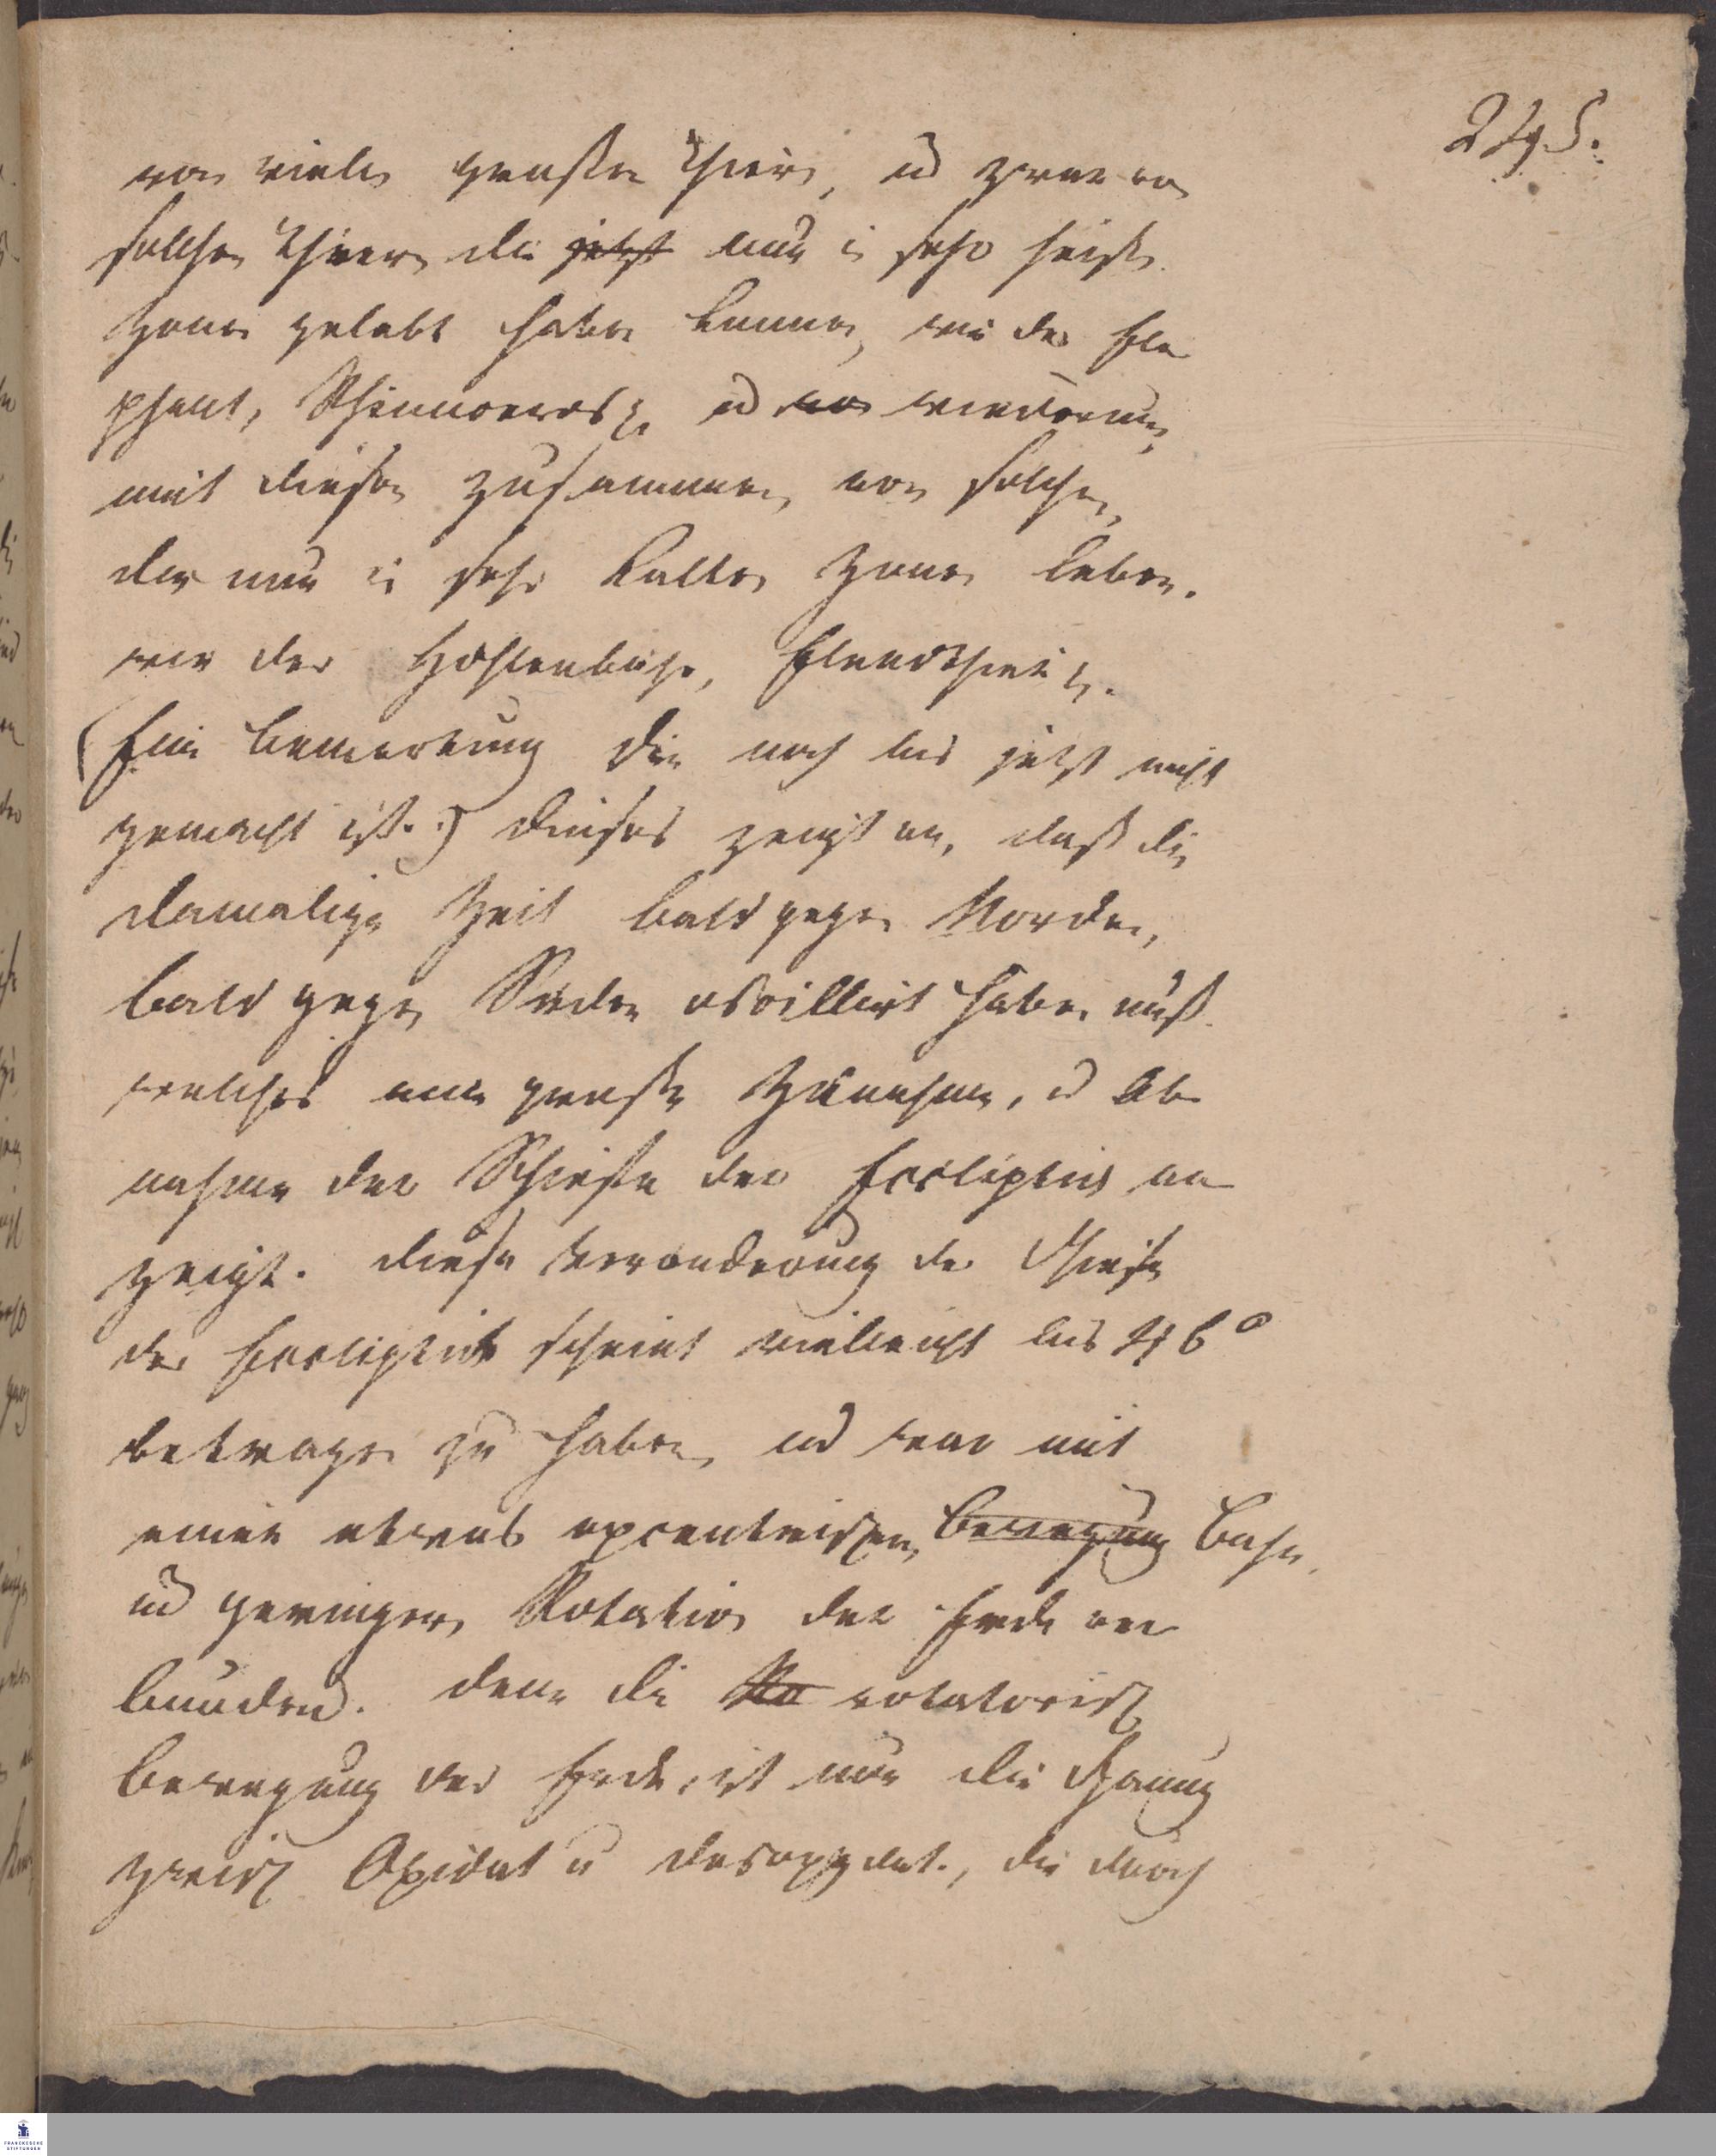 245.
von vielen großen Thieren, und zwar von
solchen Thieren die jetzt nur in sehr heißen
Zonen gelebt haben können, wie der Ele
phant, Rhinnoceros ec und von wiederum,
mit diesen zusammen, von solchen,
die nur in sehr kalten Zonen leben.
wie der Hohlenbär, Elendthier ec.
(Eine Bemerkung die noch bis jetzt nicht
gemacht ist.) dieses zeigt an, daß die
damalige Zeit bald gegen Norden,
bald gegen Süden oscillirt haben muß.
welches eine große Zunahme, und Ab
nahme der Schiefe der Eccliptik an
zeigt. diese Veränderung der Schiefe
der Eccliptik scheint vielleicht bis 46°
betragen zu haben, und war mit
einer etwas excentrischen Bewegung Bahn,
und geringern Rotation der Erde ver
bunden. denn die Ro rotatorische
Bewegung der Erde, ist nur die
zwisch Oxidat u desoxydat., die durch
FRANCKESCHE
STIFTUNGEN